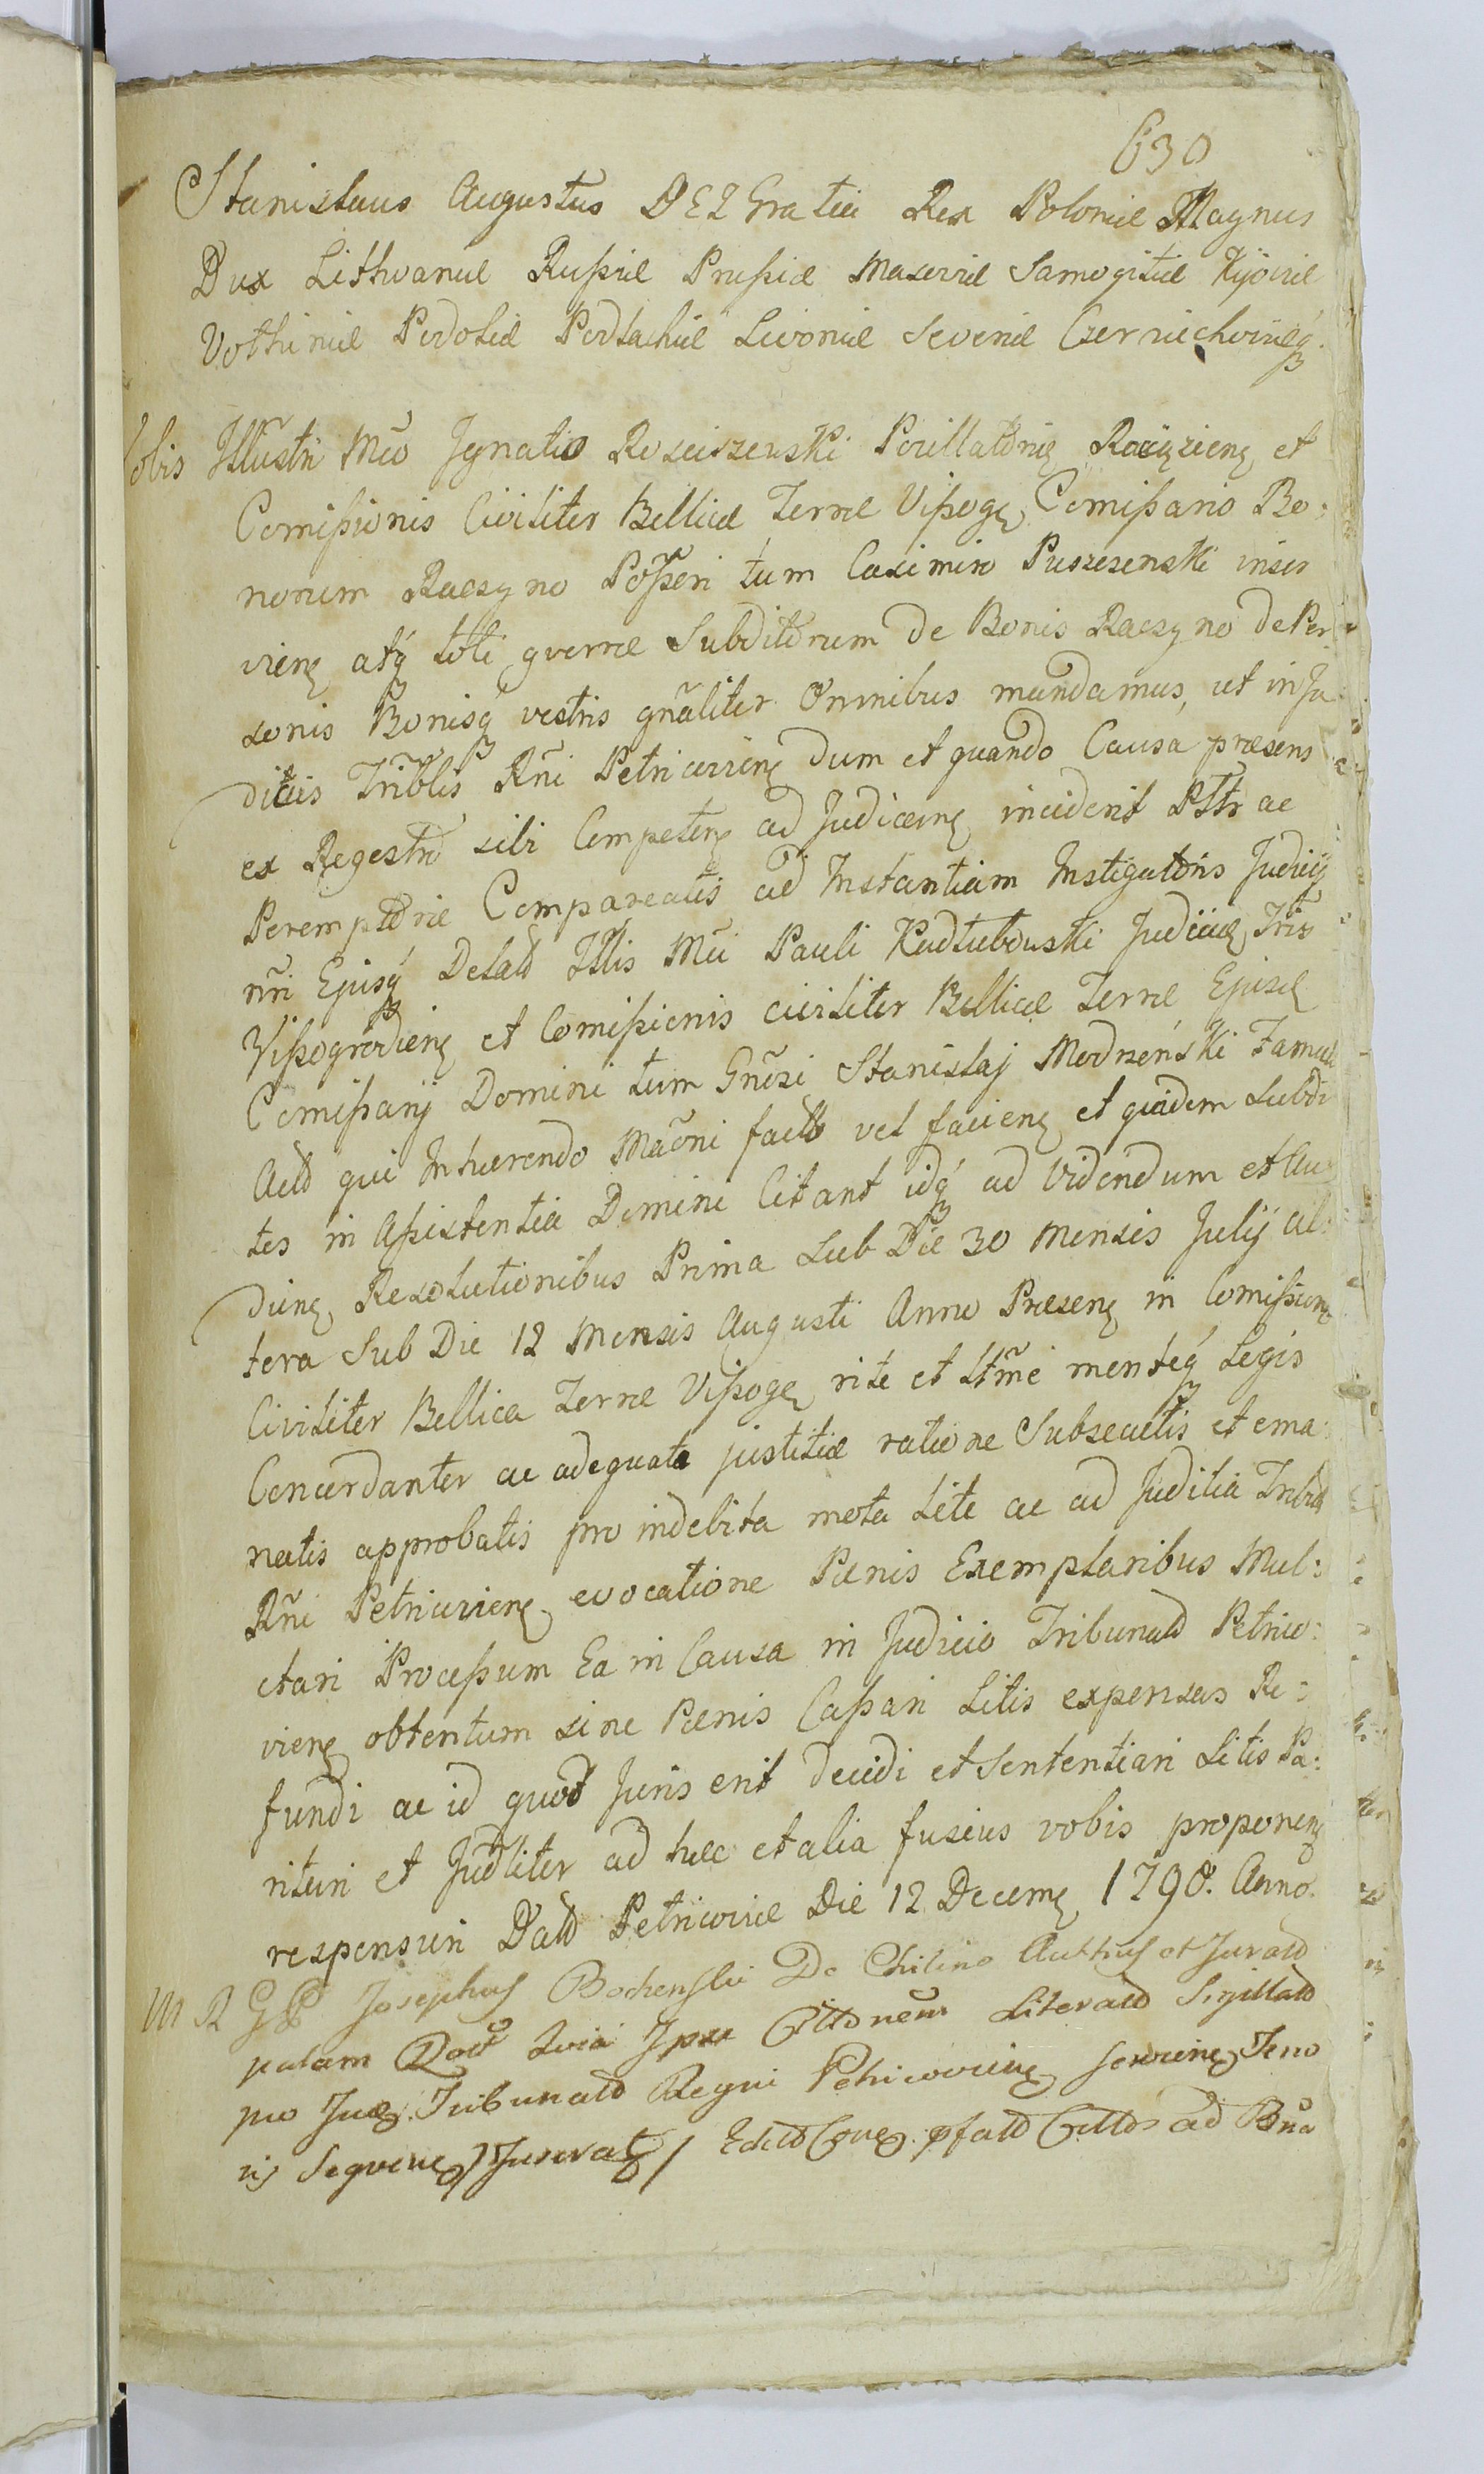 630
Stanislaus Augustus DEI Gratia Rex Poloniæ Magnus
Dux Lithvaniæ Rußiæ Prußiæ Masoviæ Samogitiæ Kijoviæ
Volhiniæ Podoliæ Podlachiæ Livoniæ Severiæ Czerniechoviæq́
Vobis Illustri Mco Ignatio Rosciszewski Raciązień et
Comißionis Civiliter Bellicæ Terræ Vißogę Comißario Bo:
norum Raczyno Poßeri tum Casimiro Puszczenski inser
vienę atq́ toti gverræ Subditorum de Bonis Raczyno de Per
sonis Bonisq́ vestris gñaliter Omnibus mandamus, ut in Ju
diciis Triblis Rñi Petricovienę dum et quando Causa præsens
ex Regestro sibi Competenę ad Judicanę inciderit Pttr ac
Peremptorie Compareatis ad Instantiam Instigatoris Judicij
nri Ejusq́ Delato Illis Mci Pauli Kadłubowski Judicis Tris
Vißogrodienę et Comißionis civiliter Bellicæ Terræ Ejusdę
Comißarij Domini tum Gnosi Stanislaj Modrzeński Famuli
Acto qui Inhærendo Maoni facto vel facienę et quidem Subdi
tes in Aßistentia Domini Citant idq́ ad Videndum et Au
dienę Resolutionibus Prima Sub Die 30 Mensis Julij al:
tera Sub Die 12 Mensis Augusti Anno Præsenę in Comißione
Civiliter Bellica Terræ Vißogę rite et lttme menteq́ Legis
Concordanter ac adequata justitiæ ratione Subsecutis et ema:
natis approbatis pro indebita mota Lite ac ad Juditia Tribul
Rñi Petricovienę evocatione Pænis Exemplaribus Mul:
ctari Proceßum Ea in Causa in Judicio Tribunalo Petrico:
vienę obtentum sine Pænis Caßari Litis expensas Re:
fundi ac id quod Juris erit decidi et Sententiari Litis Pa:
rituri et Judliter ad hæc et alia fusius vobis proponenę
responsuri Dato Petricoviæ Die 12 Decemę 1790. Anno.
M R G P Josephus Bochenski De Chilino Authus et Jurato
palam Ipse Cittonem Literato Sigillato
pro Tribunalo Regni Petricovienę
Segvenę ad Bña